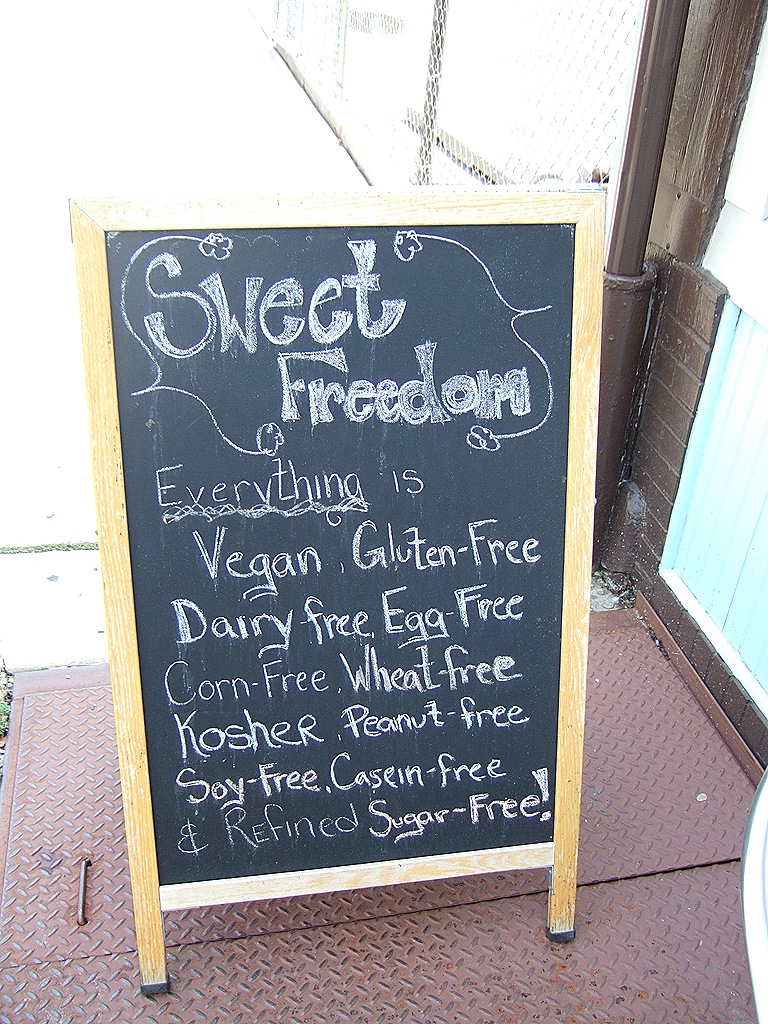 Sweet
Freedom
Everything is
Vegan, Gluten-Free
Dairy free, Egg-Free
Corn-Free, Wheat-free
Kosher, Peanut-free
Soy-Free, Casein-free
& Refined Sugar-Free!